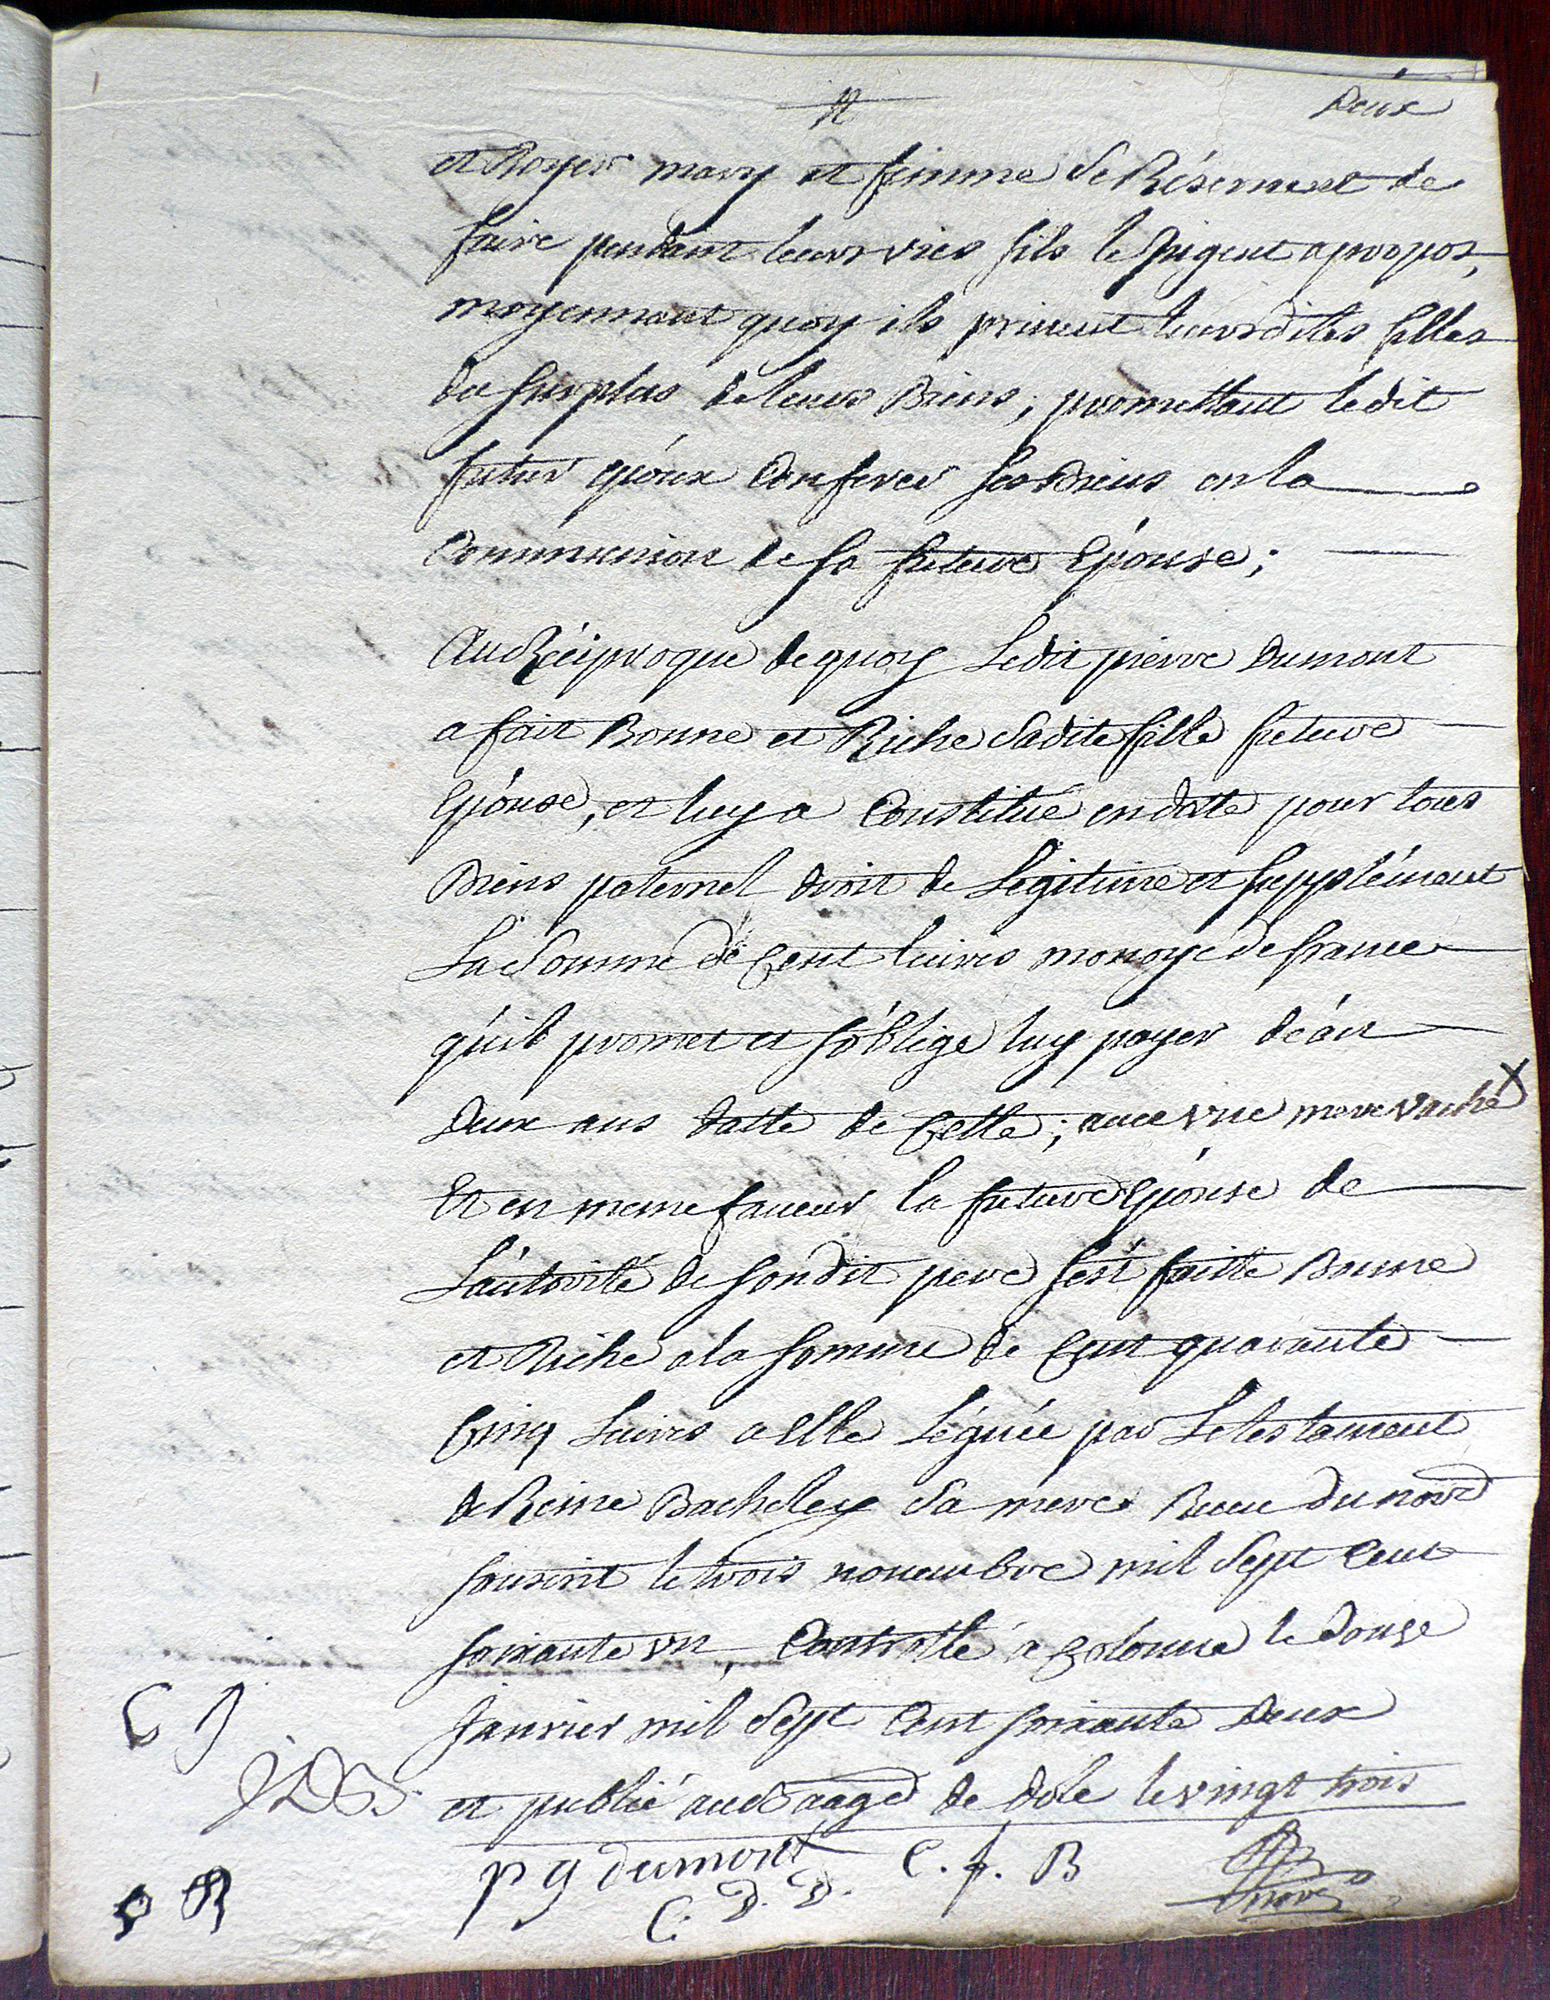 Deux
et Royer mary et femme se Réservent de
faire pendant leurs vies sils le Jugent apropos,
moyennant quoy ils privent leursdites filles
du surplus de leurs Biens, promettant ledit
futur époux Conferer ses Biens en la
Communion de sa future Epouse;
Au Réciproque de quoy Ledit pierre Dumont
a fait Bonne et Riche Sadite fille future
Epouse, et luy a Constitué en dotte pour tous
Biens paternel droit de Légitime et supplément
La Somme de Cent livres monoye de france
qu'il promet et s'oblige luy payer dé ân
Deux ans datte de Cette; avec vne mere vache X
Et en meme faveur la future Epouse de
L'autorité de son dit pere s'est faitte Bonne
et Riche a la somme de Cent quarante
Cinq Livres a Elle Léguée par Le testament
de Reine Bacheley Sa mere Receu du nore
sousint le trois novembre mil Sept Cent
soixante vn, Controllé a Colonne le Douze
Janvier mil Sept Cent soixante Deux
et publié au Baage de dole le vingt trois
C J
J D B
p g dumont C. f. B
C. D. D.
P R